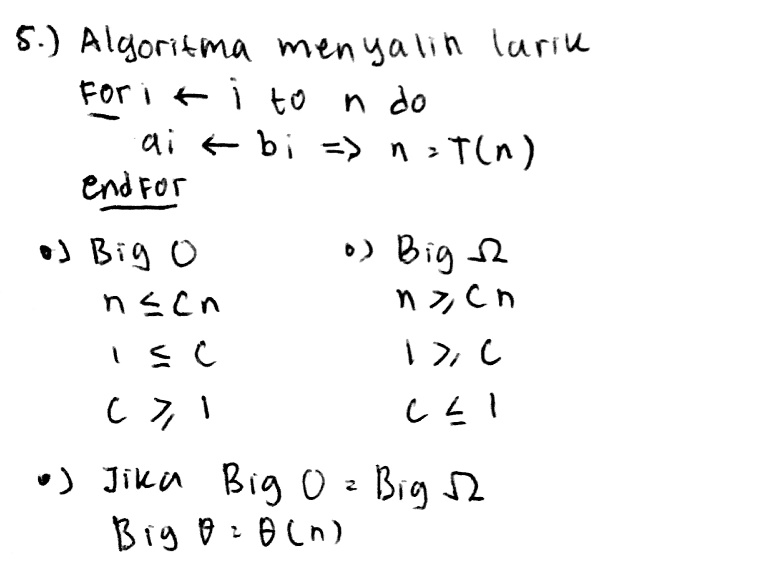 5.) Algoritma menyalin larik
For i ← i to n do
ai ← bi => n = T(n)
endFor
•) Big O
n ≤ Cn
1 ≤ C
C ≥ 1
•) Big Ω
n ≥ Cn
1 ≥ C
C ≤ 1
•) Jika Big O = Big Ω
Big θ = θ(n)